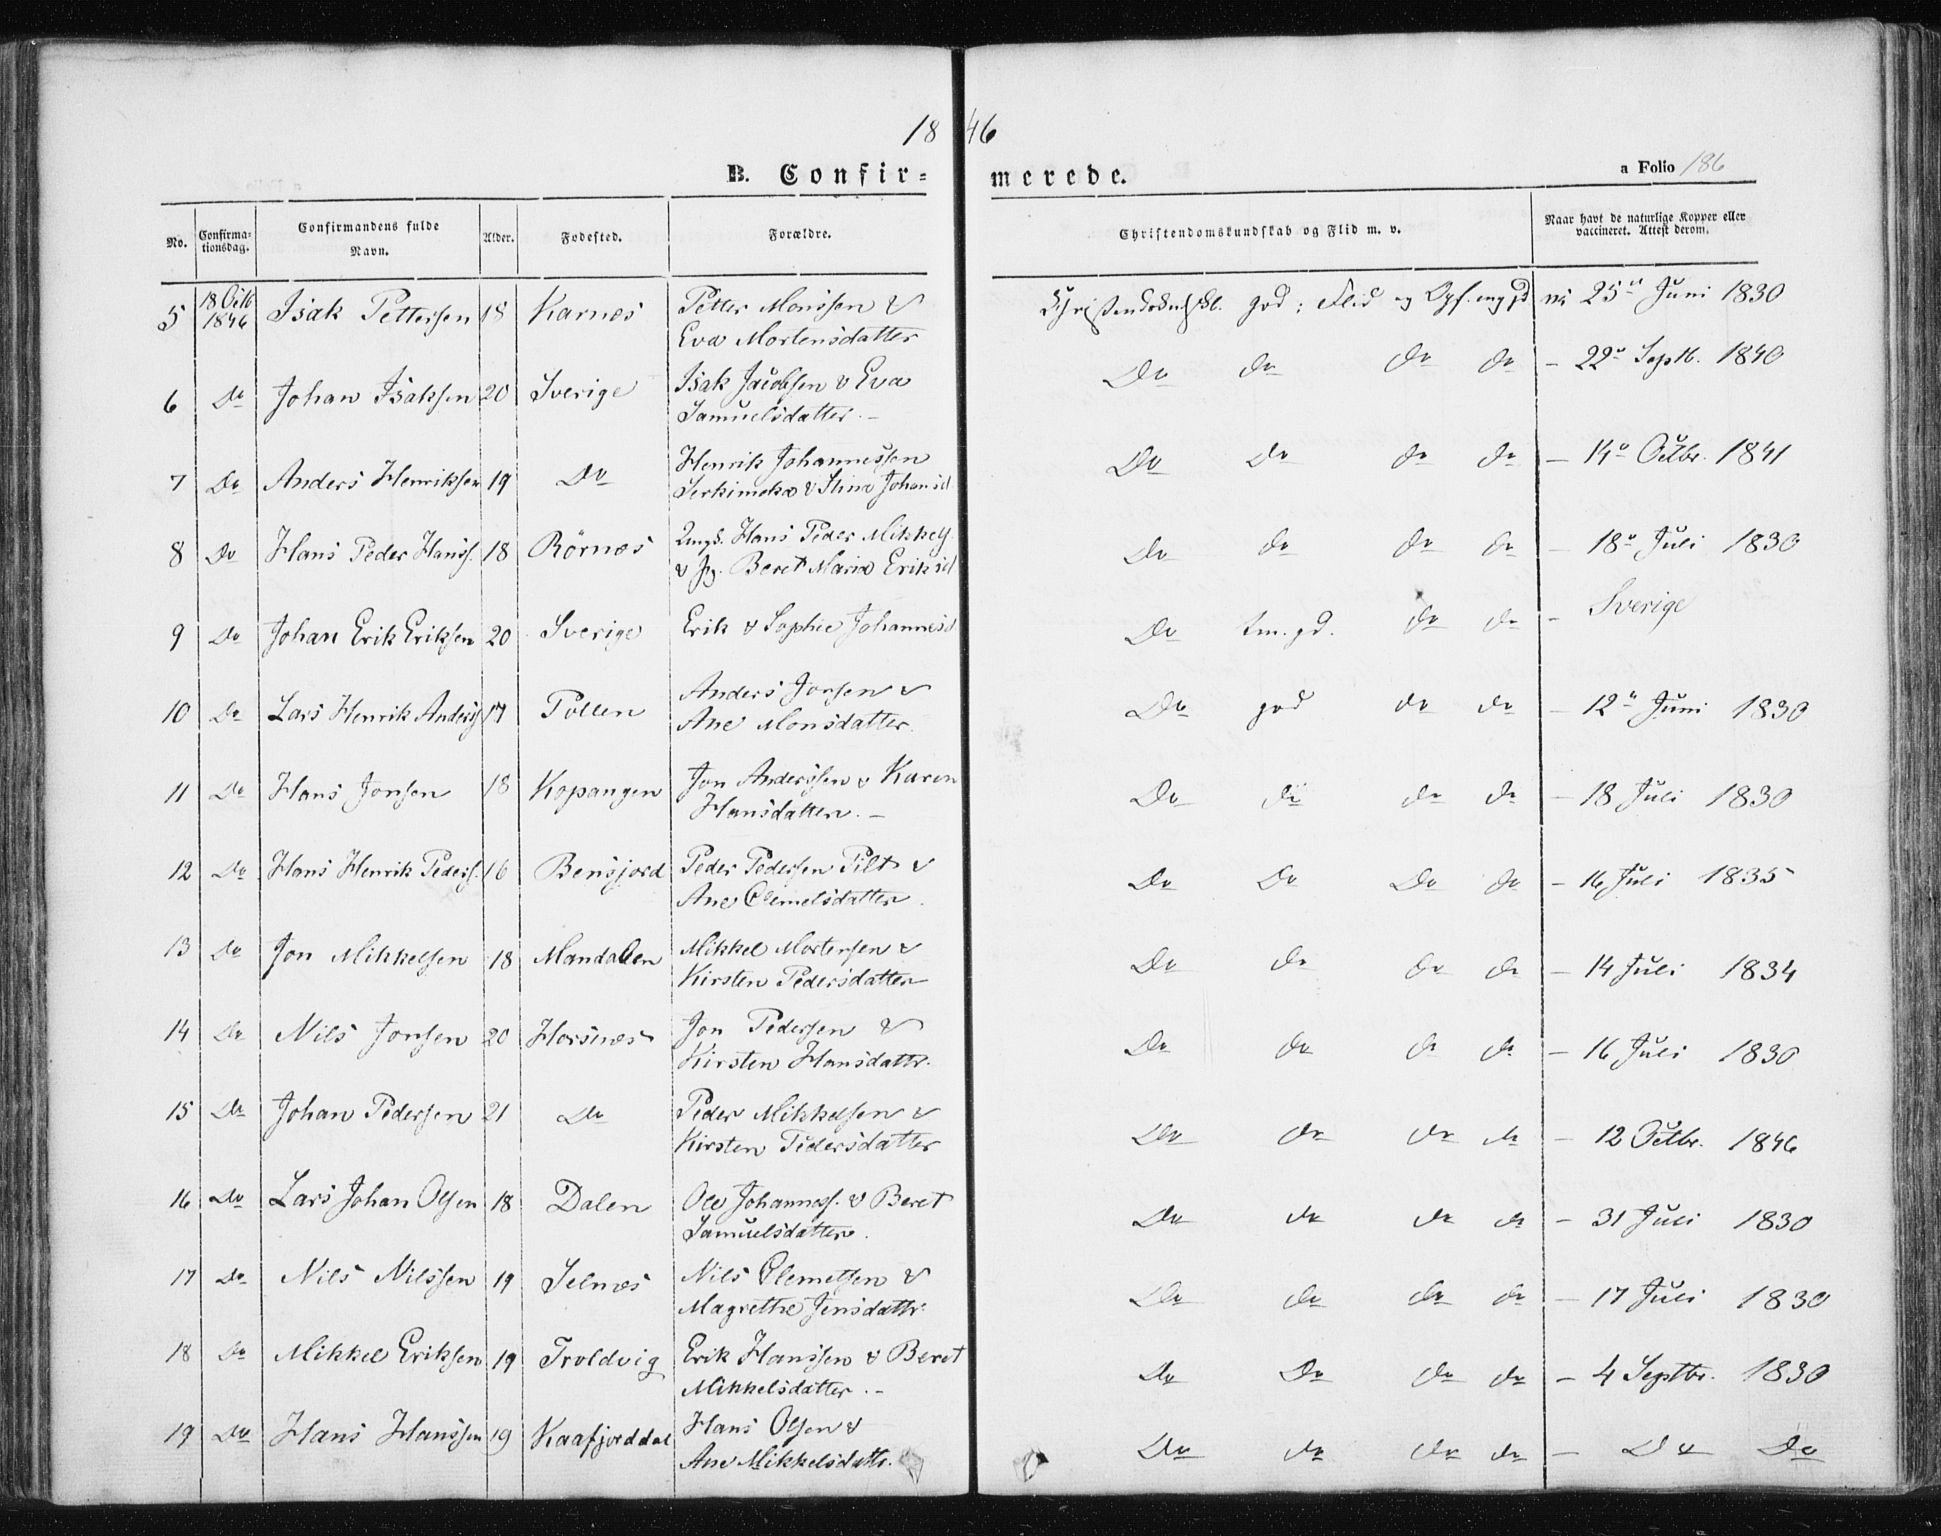 18 46
B. Confir- merede.
a Folio 186
No. Confirma-tionsdag. Confirmandens fulde Navn. Alder. Fødested. Forældre. Christendomskundskab og Flid m. v. Naar havt de naturlige Kopper eller vaccineret. Attest derom.
5 18 Octb 1846 Isak Pettersen 18 Karnæs Petter Monssen & god; Flid og Opf. meg gd v: 25de Juni 1830
Eva Mortensdatter
6 Do Johan Isaksen 20 Sverige Isak Jacobsen & Eva Do do do do - 22de Septb. 1840
Samuelsdatter. -
7 Do Anders Henriksen 19 Do Henrik Johannessen Do Do do do - 14de Octbr. 1841
& Stina Johansd
8 Do Hans Peder Hanss. 18 Rörnæs Ungk. Hans Peder Mikkels. Do do do do - 18de Juli 1830
& Pg. Beret Maria Eriksd
9 Do Johan Erik Eriksen 20 Sverige Erik & Sophie Johannesd Do tm. gd. do do - Sverige
10 Do Lars Henrik Anders. 17 Pollen Anders Jonsen & Do god do do - 12te Juni 1830
Ane Monsdatter.
11 Do Hans Jonsen 18 Kopangen Jon Anderssen & Karen Do do do do - 18 Juli 1830
Hansdatter. -
12 Do Hans Henrik Peders. 16 Bensjord Peder Pedersen Pilt & Do Do Do do - 16 Juli 1835
Ane Clemetsdatter.
13 Do Jon Mikkelsen 18 Mandalen Mikkel Mortensen & Do do do do - 14 Juli 1834
Kirsten Pedersdatter
14 Do Nils Jonsen 20 Horsnæs Jon Pedersen & Do do do do - 16 Juli 1830
Kirsten Hansdattr.
15 Do Johan Pedersen 21 Do Peder Mikkelsen & Do do do do - 12 Octbr. 1846
Kirsten Pedersdatter
16 Do Lars Johan Olsen 18 Dalen Ole Johanness. & Beret Do do do do - 31 Juli 1830
Samuelsdatter.
17 Do Nils Nilssen 19 Selnæs Nils Clemetsen & Do do do do - 17 Juli 1830
Magrethe Jensdattr.
18 Do Mikkel Eriksen 19 Troldvig Erik Hanssen & Beret Do Do do do - 4 Septbr. 1830
Mikkelsdatter. -
19 Do Hans Hanssen 19 Kaafjorddal Hans Olsen & Do do do do - Do Do
Ane Mikkelsdattr.